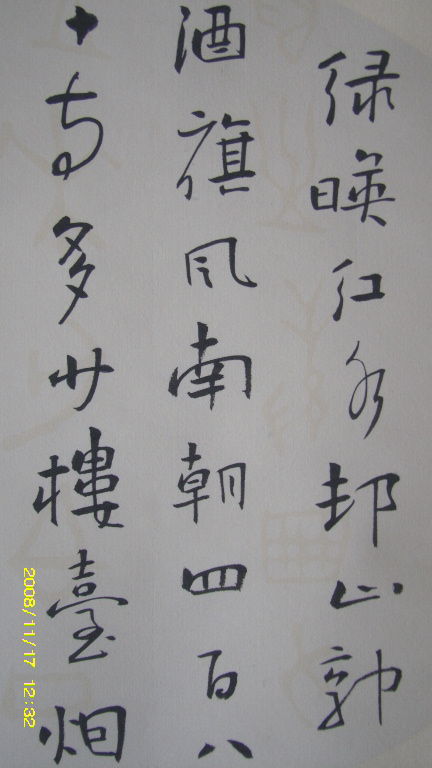 绿暎红水邨山郭
酒旗风南朝四百八
十寺多少樓臺烟
2008/11/17 12:32